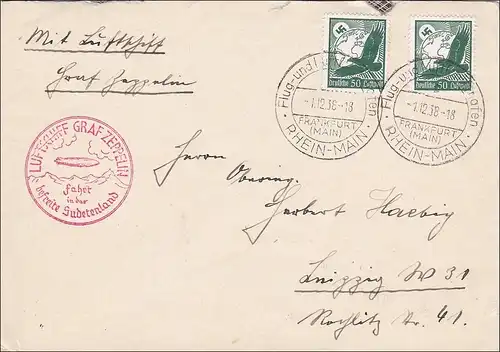 Mit Luftschiff
Graf Zeppelin
Deutsche Luftpost 50
Deutsche Luftpost 50
Flug- und Luft
-1.12.38-18
FRANKFURT
(MAIN)
RHEIN-MAIN
Flug- u hafen
-1.12.38-18
FRANKFURT
(MAIN)
RHEIN-MAIN
LUFTSCHIFF GRAF ZEPPELIN
Fahrt
in das
befreite Sudetenland
Herrn
Obering.
Herbert Haebig
Leipzig W 31
Rochlitz Str. 41.